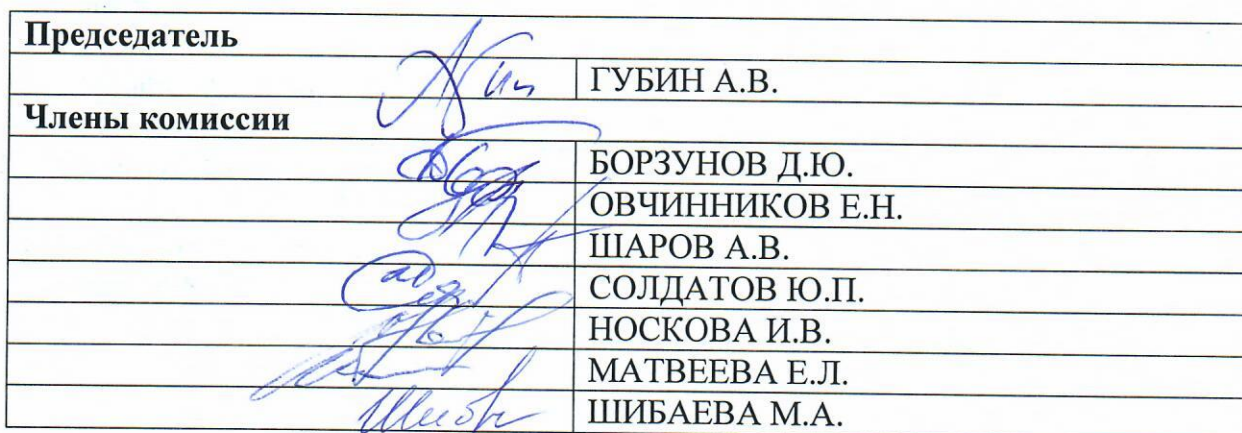 Председатель
ГУБИН А.В.
Члены комиссии
БОРЗУНОВ Д.Ю.
ОВЧИННИКОВ Е.Н.
ШАРОВ А.В.
СОЛДАТОВ Ю.П.
НОСКОВА И.В.
МАТВЕЕВА Е.Л.
ШИБАЕВА М.А.